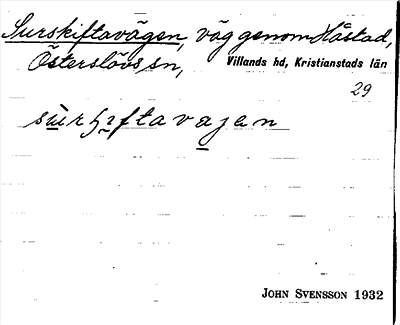 Surskiftavägen, väg genom Håstad,
Österslövs sn, Villands hd, Kristianstads län
29
JOHN SVENSSON 1932